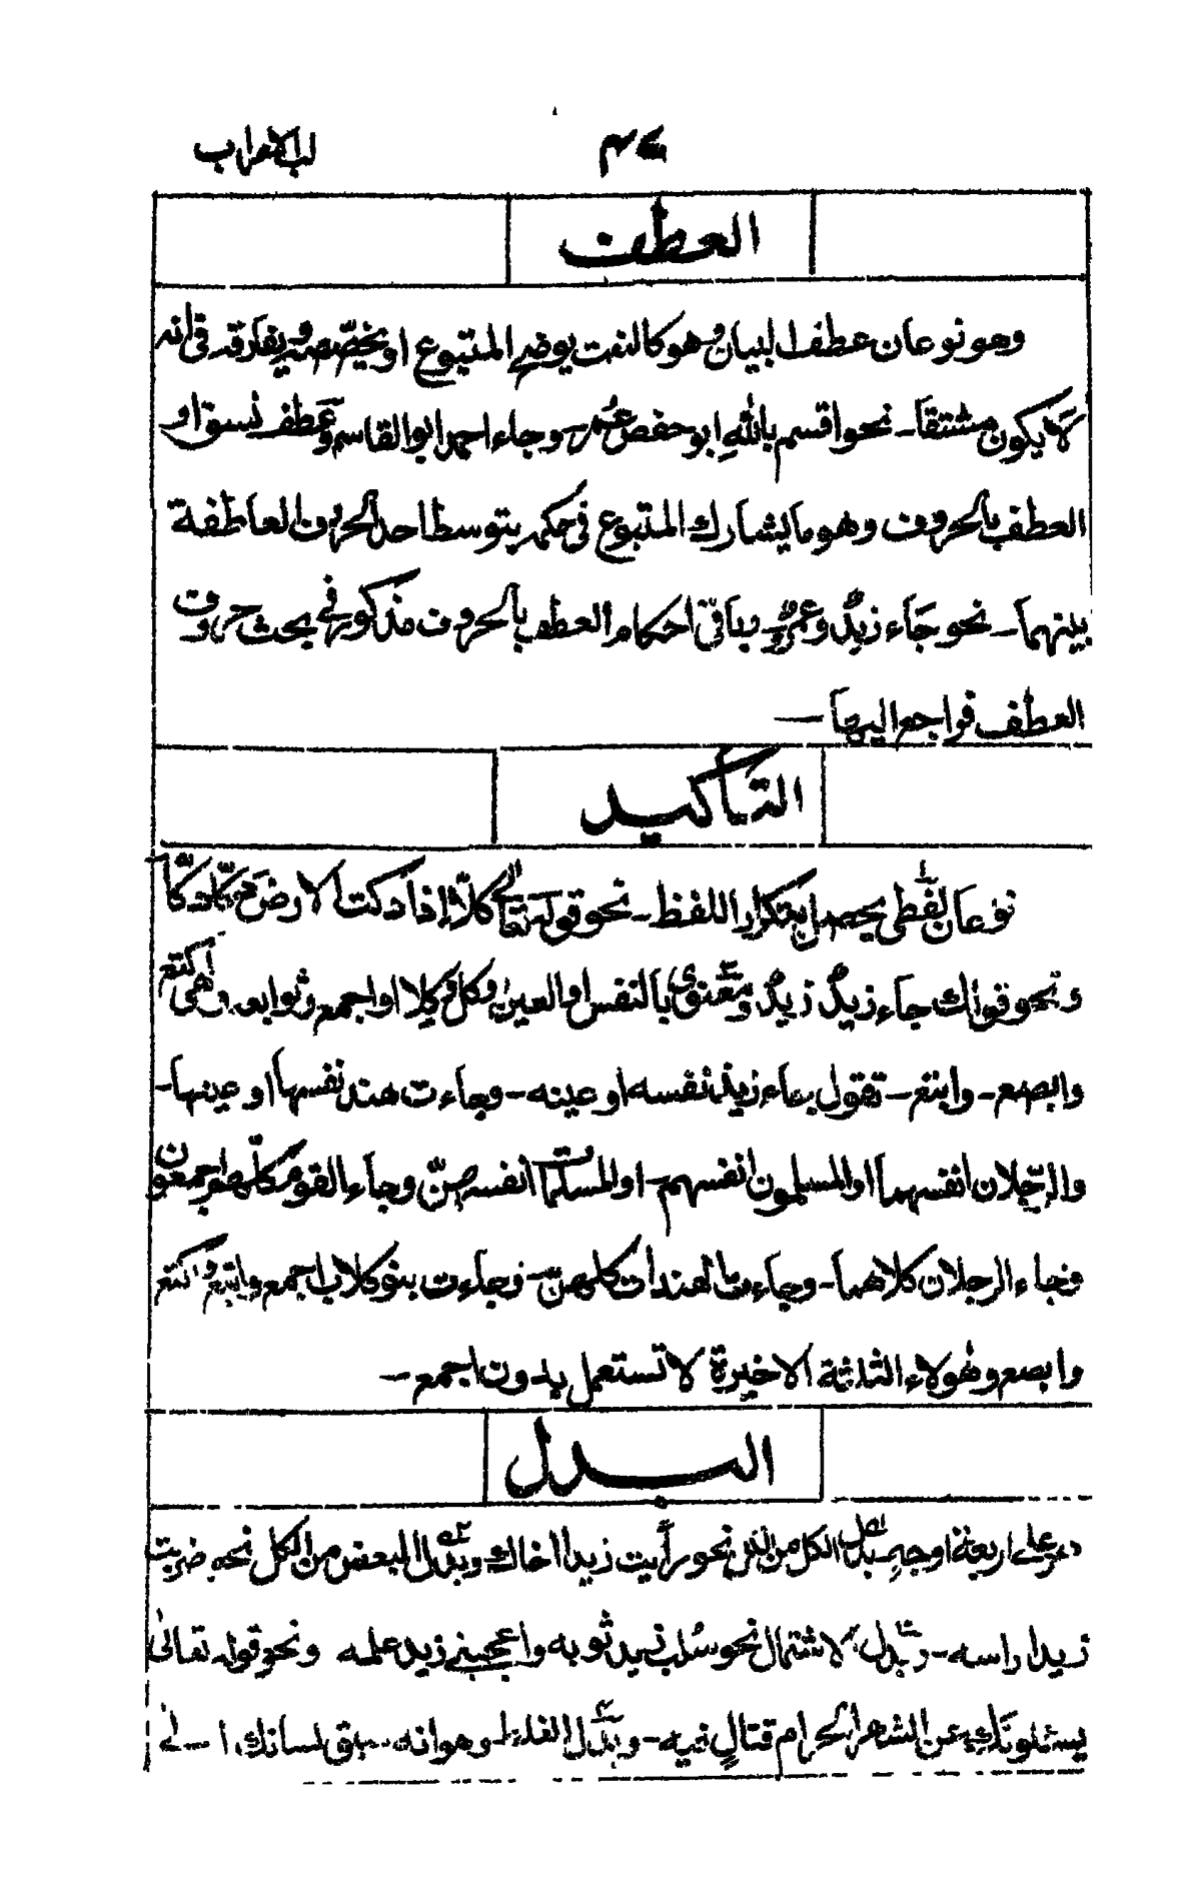 لب الاعراب
العطف
وهو نوعان عطف البيان وهو كالنعت يوضح المتبوع او يخصّصه ويفارقه فى انه
لا يكون مشتقا۔ نحو اقسم بالله ابو حفص عُمر۔ وجاء احمد ابو القاسم وعطف نسق او
العطف بالحروف وهو ما يشارك المتبوع فى حكمه بتوسط احد الحروف العاطفة
بينهما۔ نحو جَاء زيدٌ وعمرٌو۔ وباقى احكام العطف بالحروف مذكور فى بحث حروف
العطف فراجع اليها۔
التاكيد
نوعان لفظى يحصل بتكرار اللفظ۔ نحو قوله تعالى كلّا اذا دكت الارض دكّا دكّا
ونحو قولك جاء زيدٌ زيدٌ ۲ ومعنوى بالنفس او العين وكل وكلا او اجمع وتوابعه وهى اكتع
وابصع۔ وابتع۔ تقول جاء زيد نفسه او عينه۔ وجاءت هند نفسها او عينها۔
والرجلان انفسهما او المسلمون انفسهم۔ او المسلمات انفسهنّ وجاء القوم كلّهم اجمعون
وجاء الرجلان كلاهما۔ وجاءت الهندات كلهنّ۔ وجاءت بنو كلاب اجمع وابتع واكتع
وابصع وهٰولاء الثلاثة الاخيرة لا تستعمل بدون اجمع۔
البدل
وهو على اربعة اوجه بدل الكل من الكل نحو رأيت زيدا اخاك ۲ وبدل البعض من الكل نحو ضربت
زيدا راسه۔ ۳ وبدل الاشتمال نحو سُلب زيد ثوبه واعجبنى زيد علمه ونحو قوله تعالىٰ
يسئلونك عن الشهر الحرام قتالٍ فيه۔ ۴ وبدل الغلط۔ وهو انه سبق لسانك الى